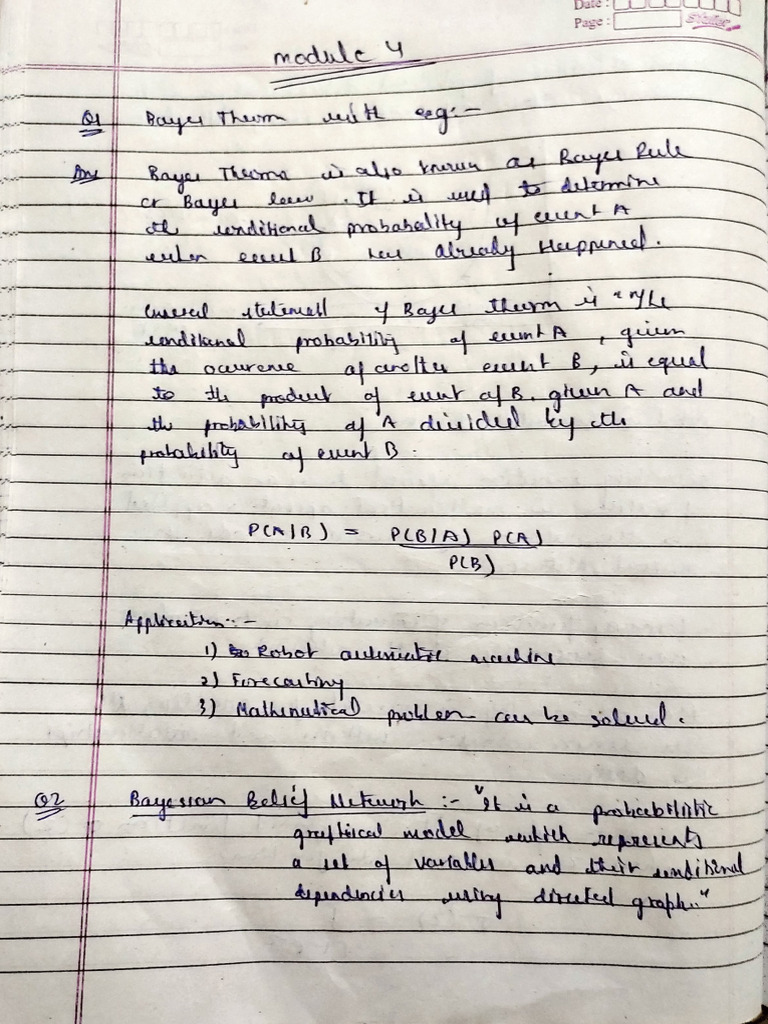 Date :
Page :
module 4
Q1 Bayes Therm with eg:-
Ans Bayes Therma is also known as Bayes Rule
or Bayes law. It is used to determine
the conditional probability of event A
when event B has already Happened.
General statement of Bayes therm is "The
conditional probability of event A, given
the occurence of another event B, is equal
to the product of event of B. given A and
the probability of A divided by the
probability of event B.
P(A|B) = P(B|A) P(A)
P(B)
Application:-
1) Robot automatic machine
2) Forecasting
3) Mathematical problem can be solved.
Q2 Bayesian Belief Network :- "It is a probabilistic
graphical model which represents
a set of variables and their conditional
dependencies using directed graph."